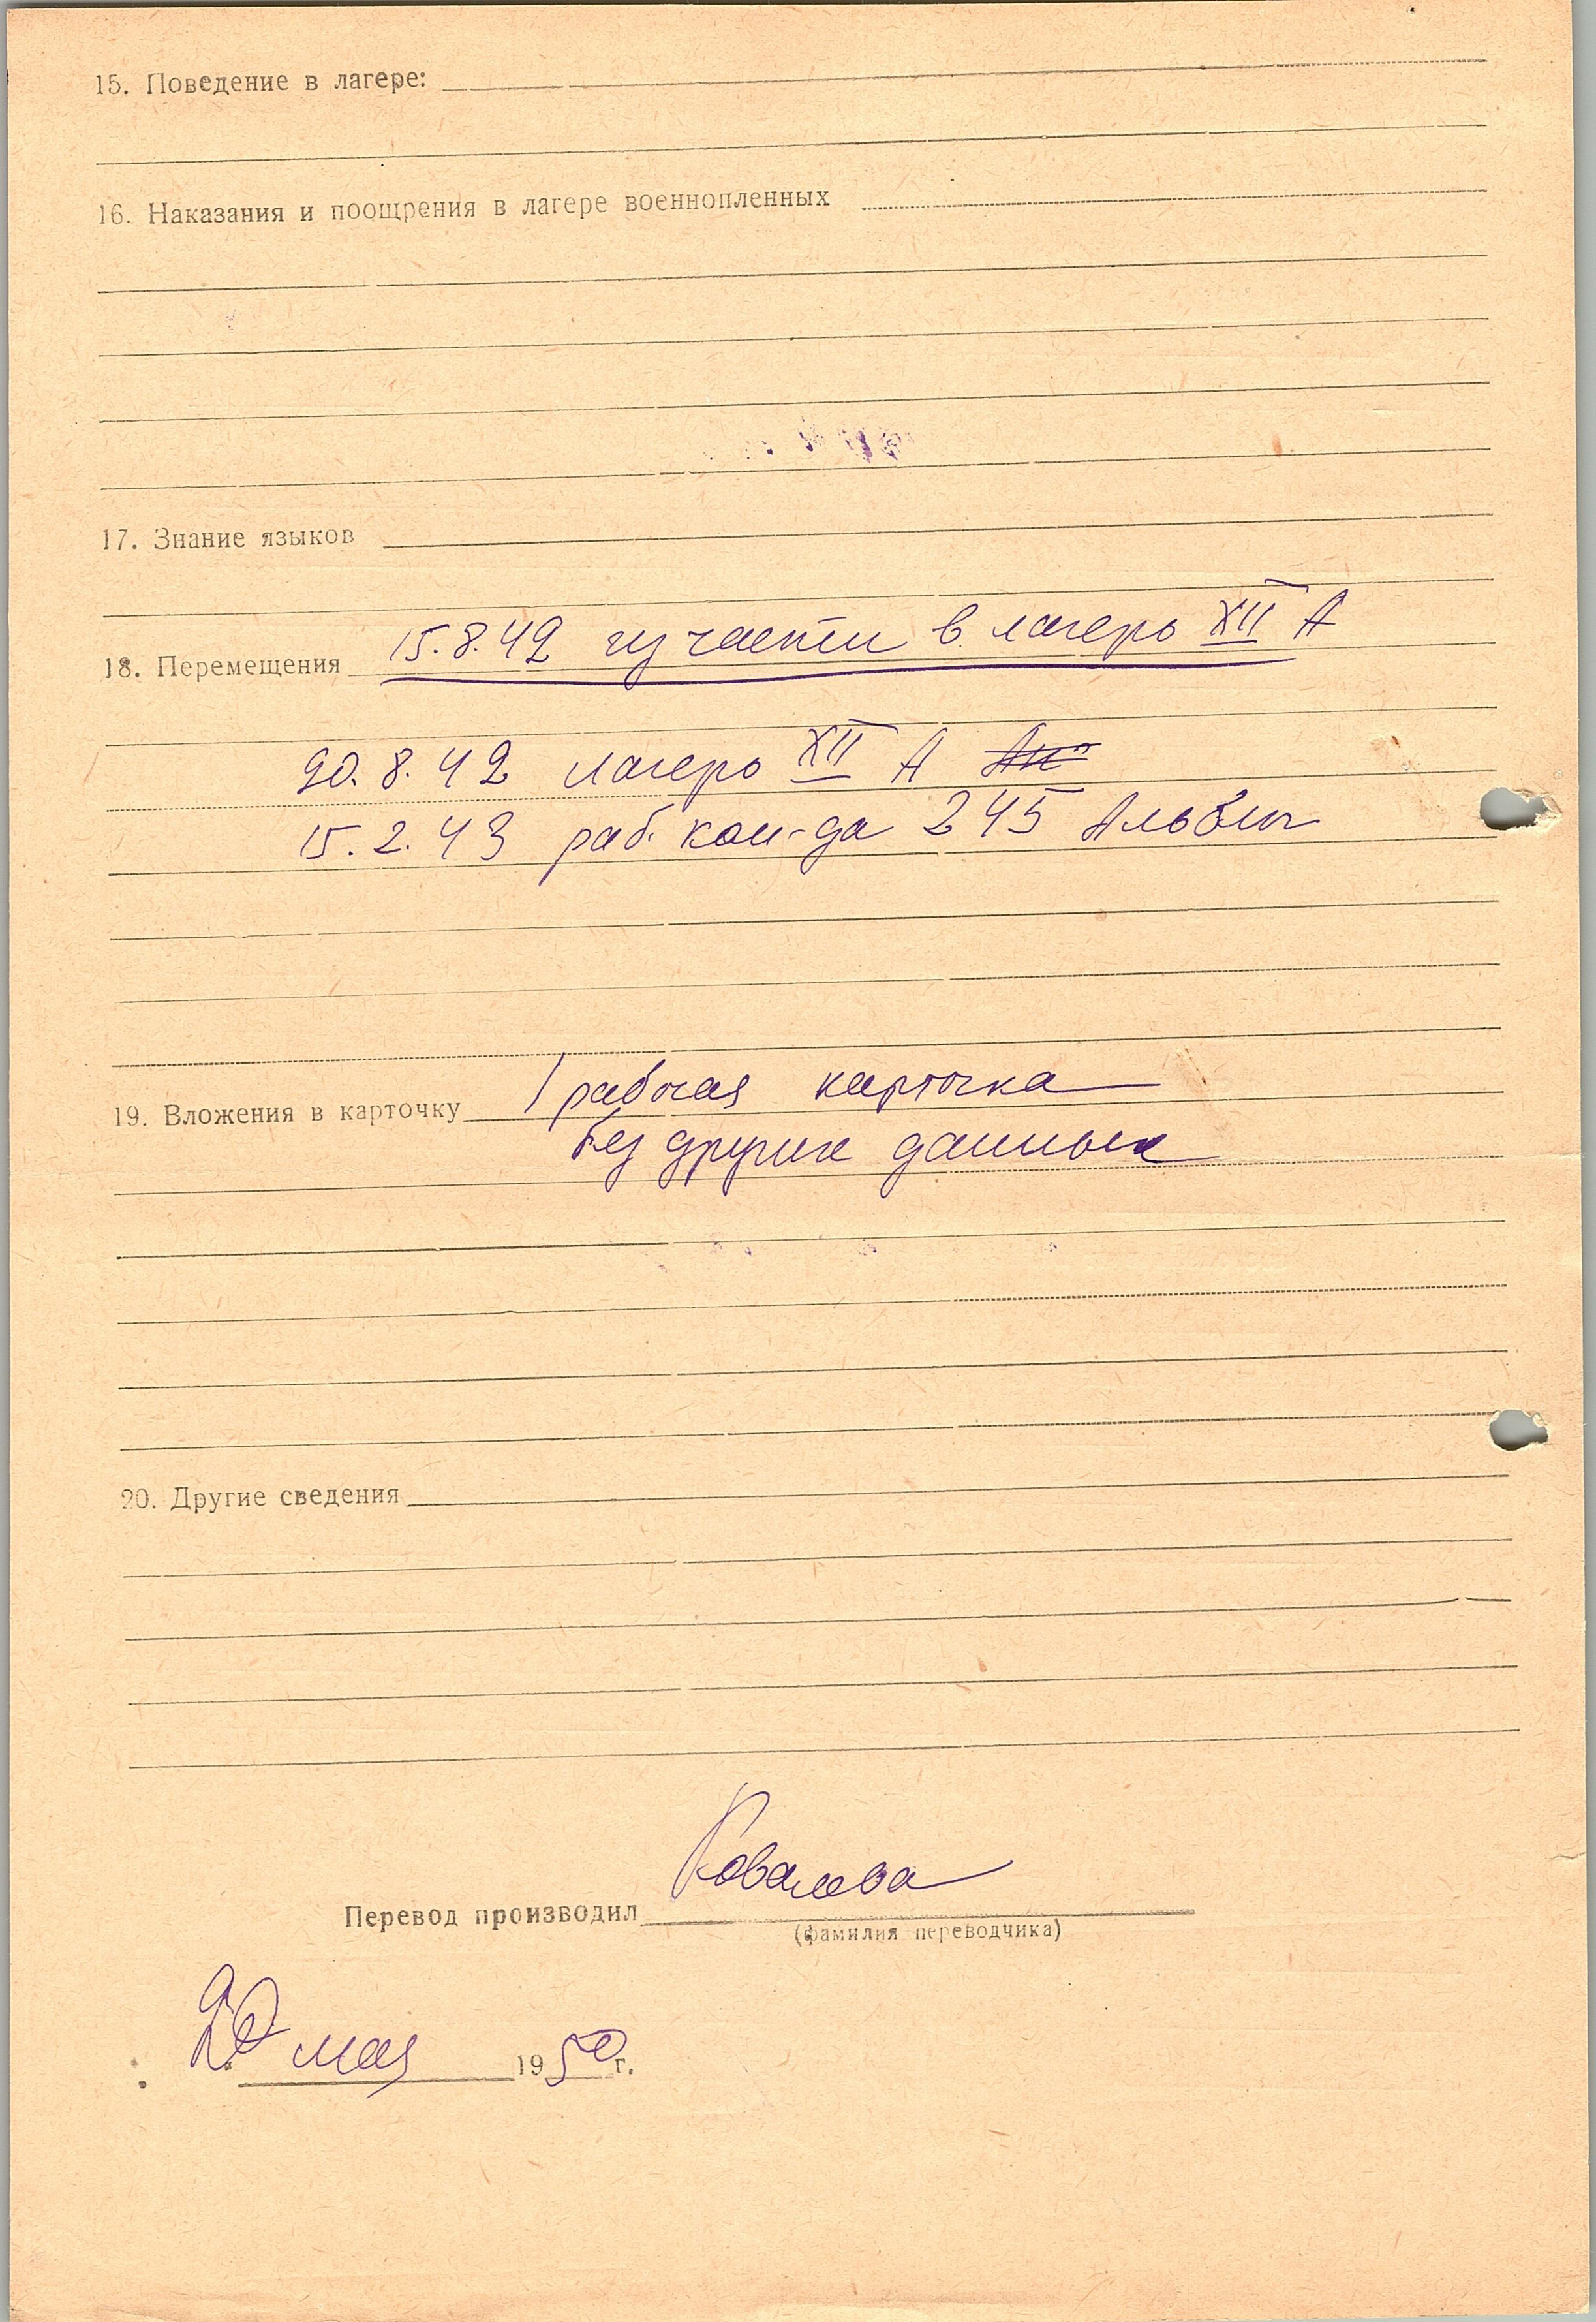 15. Поведение в лагере:
16. Наказания и поощрения в лагере военнопленных
17. Знание языков
18. Перемещения 15.8.42 из части в лагерь XII А
20.8.42 лагерь XII А
15.2.43 раб. ком-да 245
19. Вложения в карточку 1 рабочая карточка
без других данных
20. Другие сведения
Перевод производил Ковалева
(фамилия переводчика)
20 мая 1950 г.